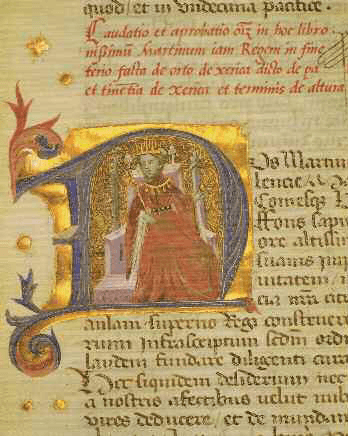 quod et in undecima pacifice.
Laudatio et aprobatio oīz in hoc libro
nissimū Martinum iam Regem in sine
terio facta de orto de xerica dicto de pa
et tinētia de xerica et terminis de altura
os Martinu
lencie
Comesqz
ffons sapi
ore altissim
suavis
uitatem
cia nra
aulam superno Regi construere
rum infrascriptum sedm ordi
laudem fundare diligenti cura
Hec siquidem desiderium nec
a nostris afectibus uelut nub
vires deducere, et de mundan